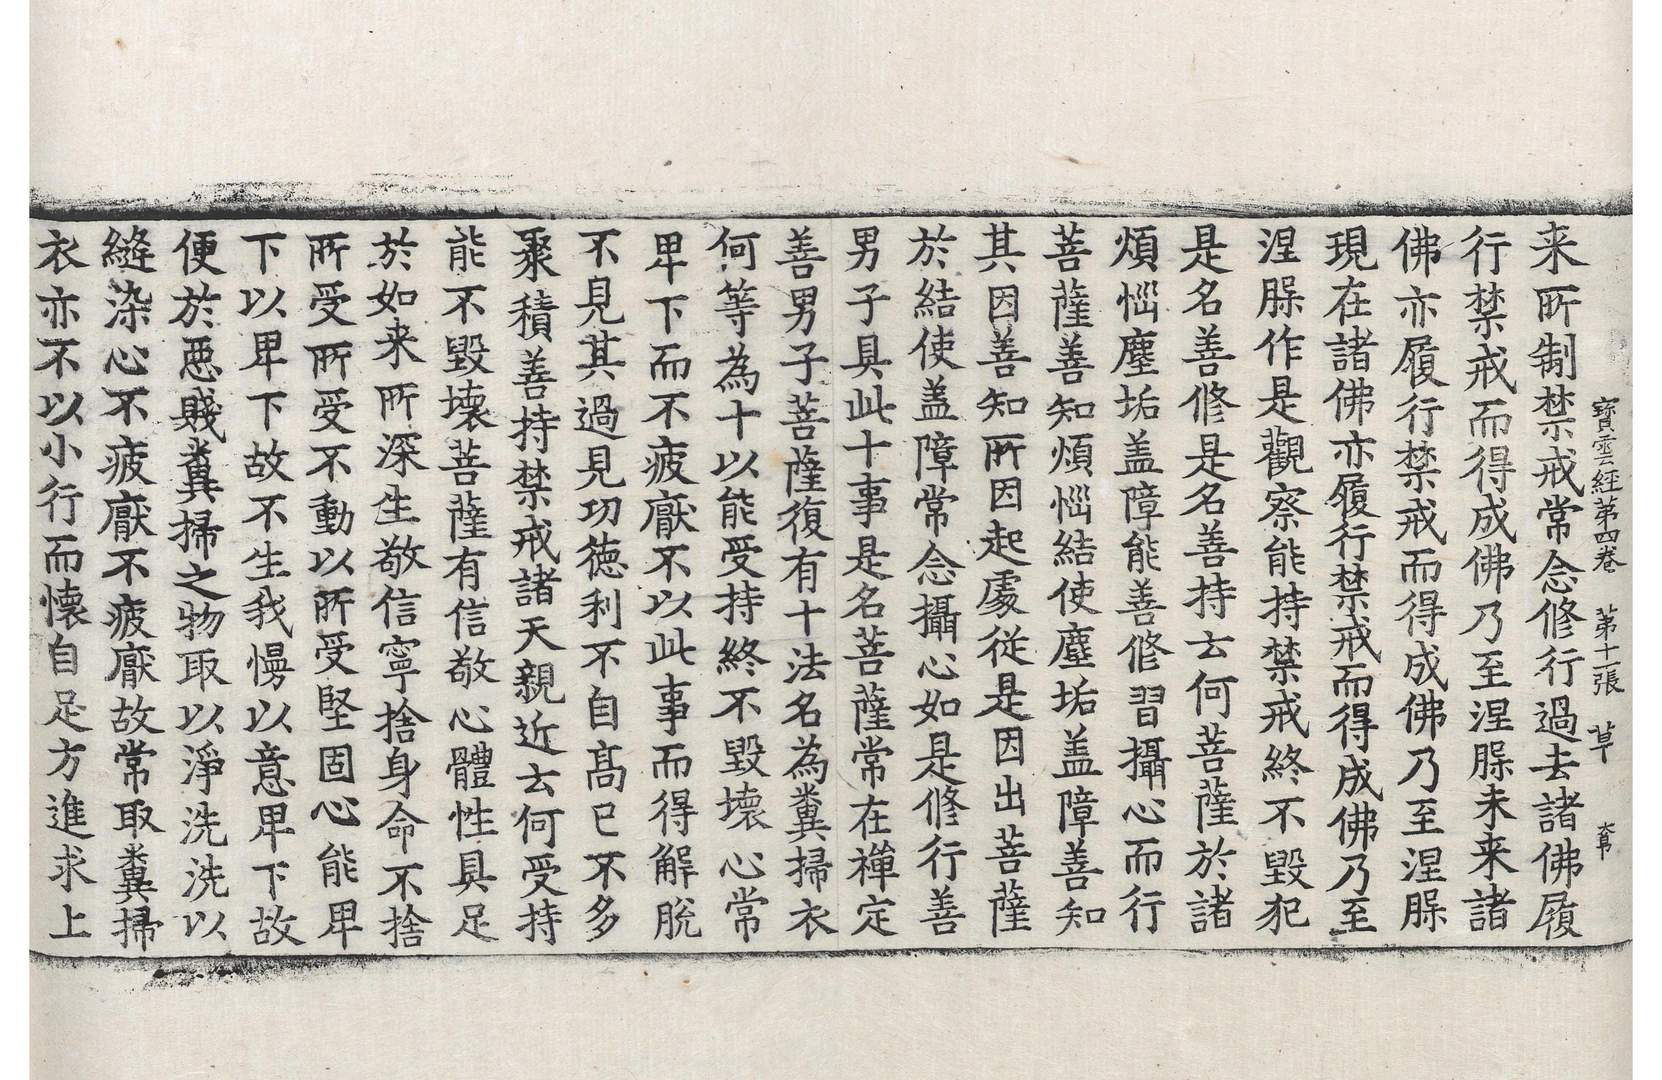 寶雲經第四卷 第十一張 草
来所制禁戒常念修行過去諸佛履
行禁戒而得成佛乃至涅槃未来諸
佛亦履行禁戒而得成佛乃至涅槃
現在諸佛亦履行禁戒而得成佛乃至
涅槃作是觀察能持禁戒終不毀犯
是名善修是名善持云何菩薩於諸
煩惱塵垢盖障能善修習攝心而行
菩薩善知煩惱結使塵垢盖障善知
其因善知所因起處從是因出菩薩
於結使盖障常念攝心如是修行善
男子具此十事是名菩薩常在禪定
善男子菩薩復有十法名為糞掃衣
何等為十以能受持終不毀壞心常
卑下而不疲厭不以此事而得解脫
不見其過見功德利不自髙已不多
聚積善持禁戒諸天親近云何受持
能不毀壞菩薩有信敬心體性具足
於如来所深生敬信寧捨身命不捨
所受所受不動以所受堅固心能卑
下以卑下故不生我慢以意卑下故
便於惡賤糞掃之物取以淨洗洗以
縫染心不疲厭不疲厭故常取糞掃
衣亦不以小行而懷自足方進求上